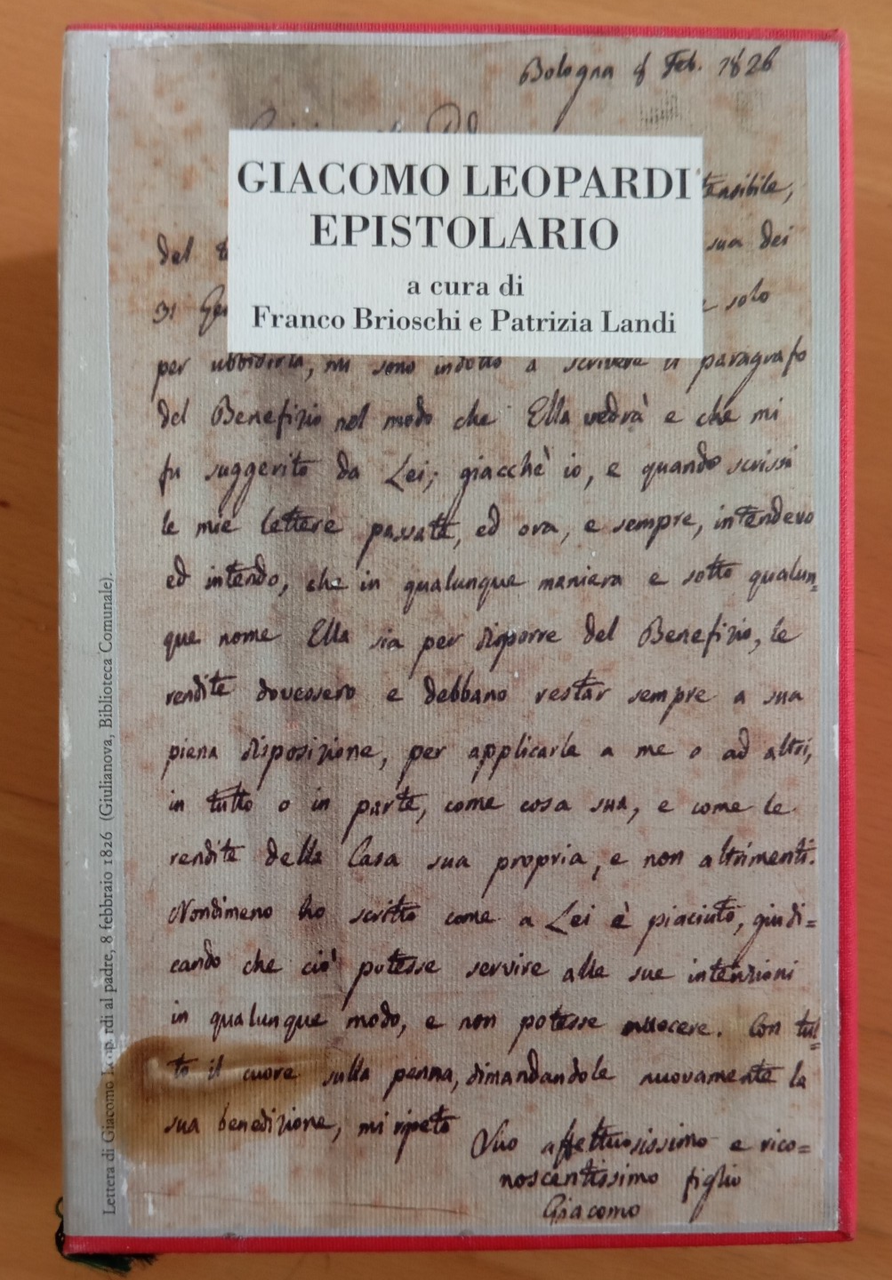 Bologna 8 Feb. 1826
GIACOMO LEOPARDI
EPISTOLARIO
a cura di
Franco Brioschi e Patrizia Landi
tensibile,
del
sua dei
31 Gen
solo
per ubbidirla, mi sono indotto a scrivere il paragrafo
del Benefizio nel modo che Ella vedrà e che mi
fu suggerito da Lei; giacchè io, e quando scrissi
le mie lettere passate, ed ora, e sempre, intendevo
ed intendo, che in qualunque maniera e sotto qualun=
que nome Ella sia per disporre del Benefizio, le
rendite dovessero e debbano restar sempre a sua
piena disposizione, per applicarle a me o ad altri,
in tutto o in parte, come cosa sua, e come le
rendite della Casa sua propria, e non altrimenti.
Nondimeno ho scritto come a Lei è piaciuto, giudi=
cando che ciò potesse servire alle sue intenzioni
in qualunque modo, e non potesse nuocere. Con tut=
to il cuore sulla penna, dimandandole nuovamente la
sua benedizione, mi ripeto
Suo affettuosissimo e rico=
noscentissimo figlio
Giacomo
Lettera di Giacomo Leopardi al padre, 8 febbraio 1826 (Giulianova, Biblioteca Comunale).